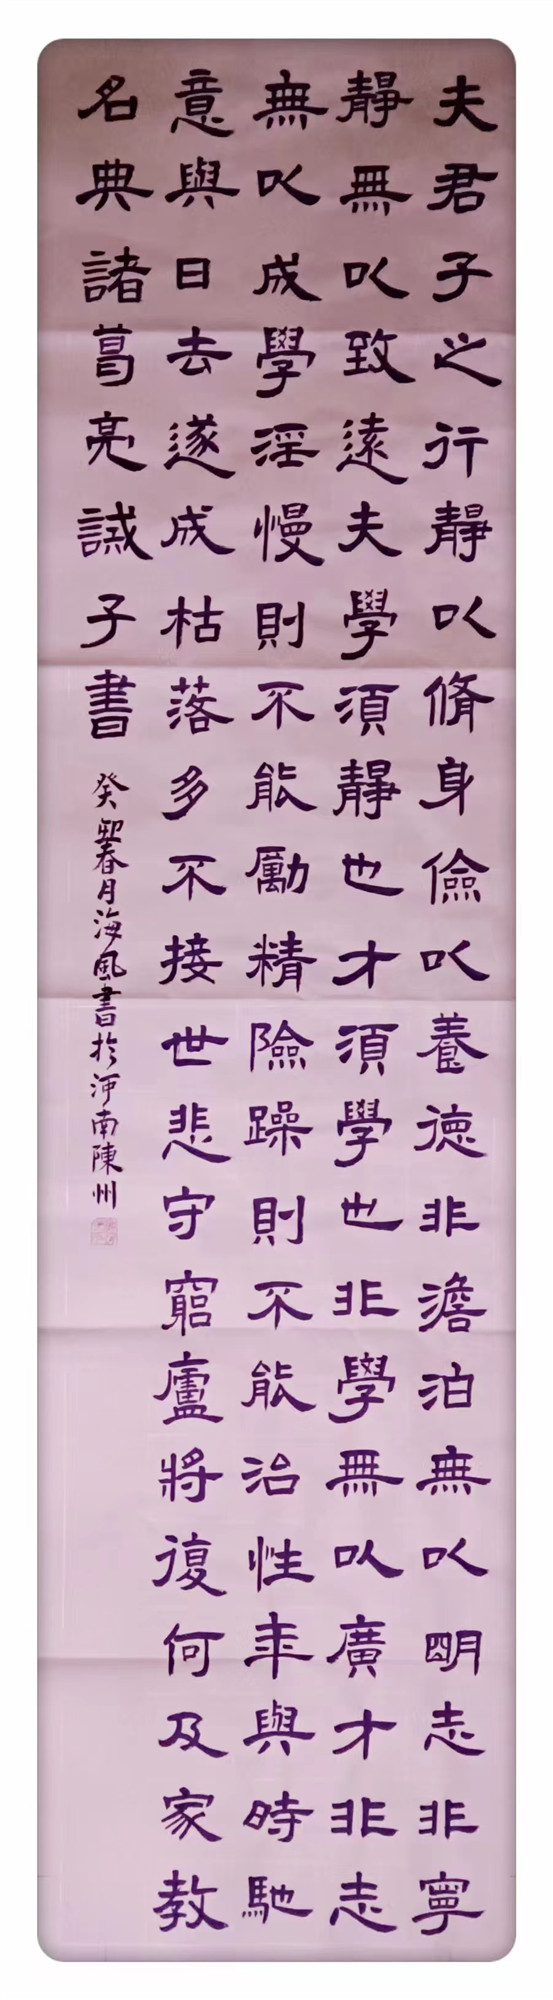 夫君子之行靜以脩身儉以養德非澹泊無以明志非寧
靜無以致遠夫學須靜也才須學也非學無以廣才非志
無以成學淫慢則不能勵精險躁則不能治性年與時馳
意與日去遂成枯落多不接世悲守窮廬將復何及家教
名典諸葛亮誡子書
癸卯春月海風書於河南陳州